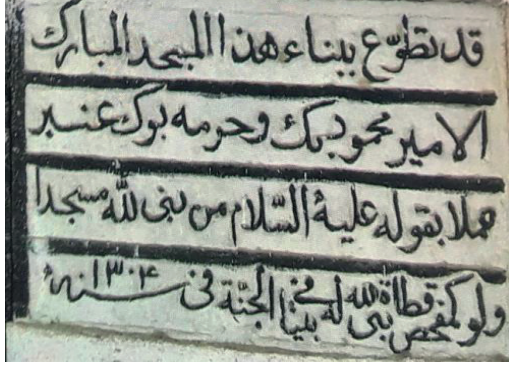 قد تطوّع ببناء هذا المسجد المبارك
الامير محمود بك وحرمه بوك عنبر
عملا بقوله عليه السّلام من بنى لله مسجدا
ولو كمفحص قطاة بنى الله له بيتا فى الجنّة فى سنة ١٣٠٤